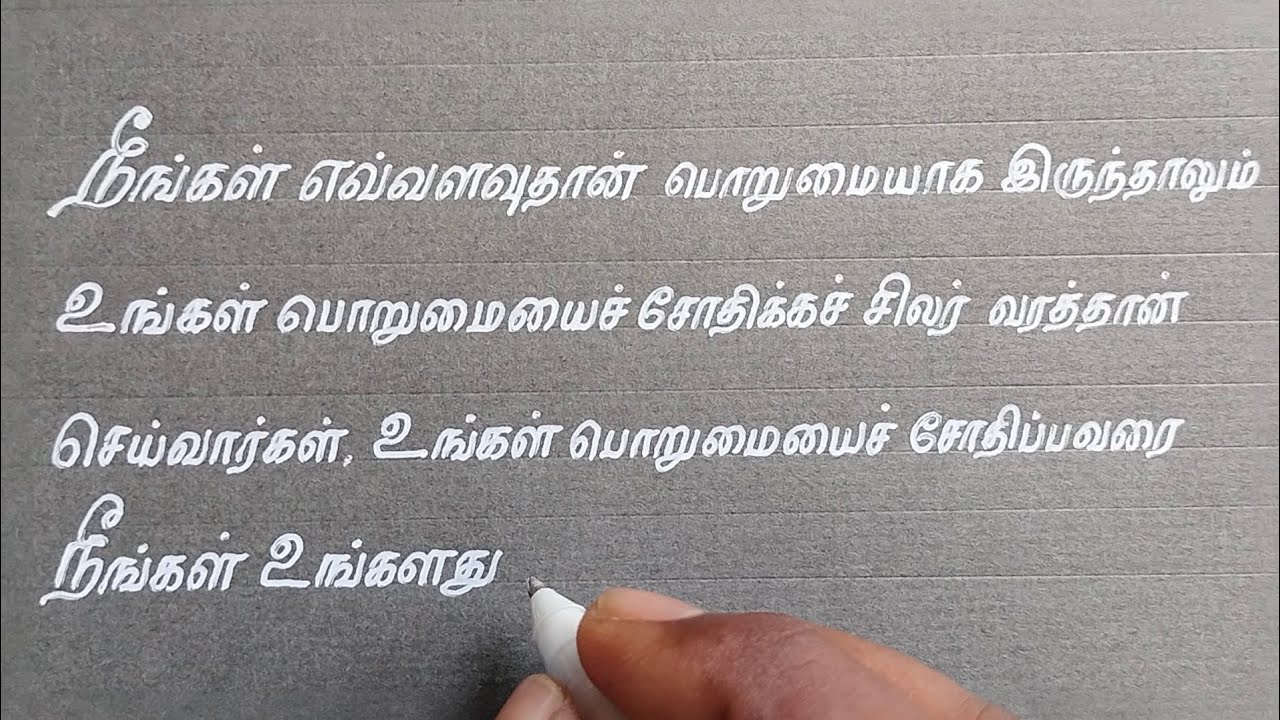 நீங்கள் எவ்வளவுதான் பொறுமையாக இருந்தாலும்
உங்கள் பொறுமையைச் சோதிக்கச் சிலர் வரத்தான்
செய்வார்கள், உங்கள் பொறுமையைச் சோதிப்பவரை
நீங்கள் உங்களது